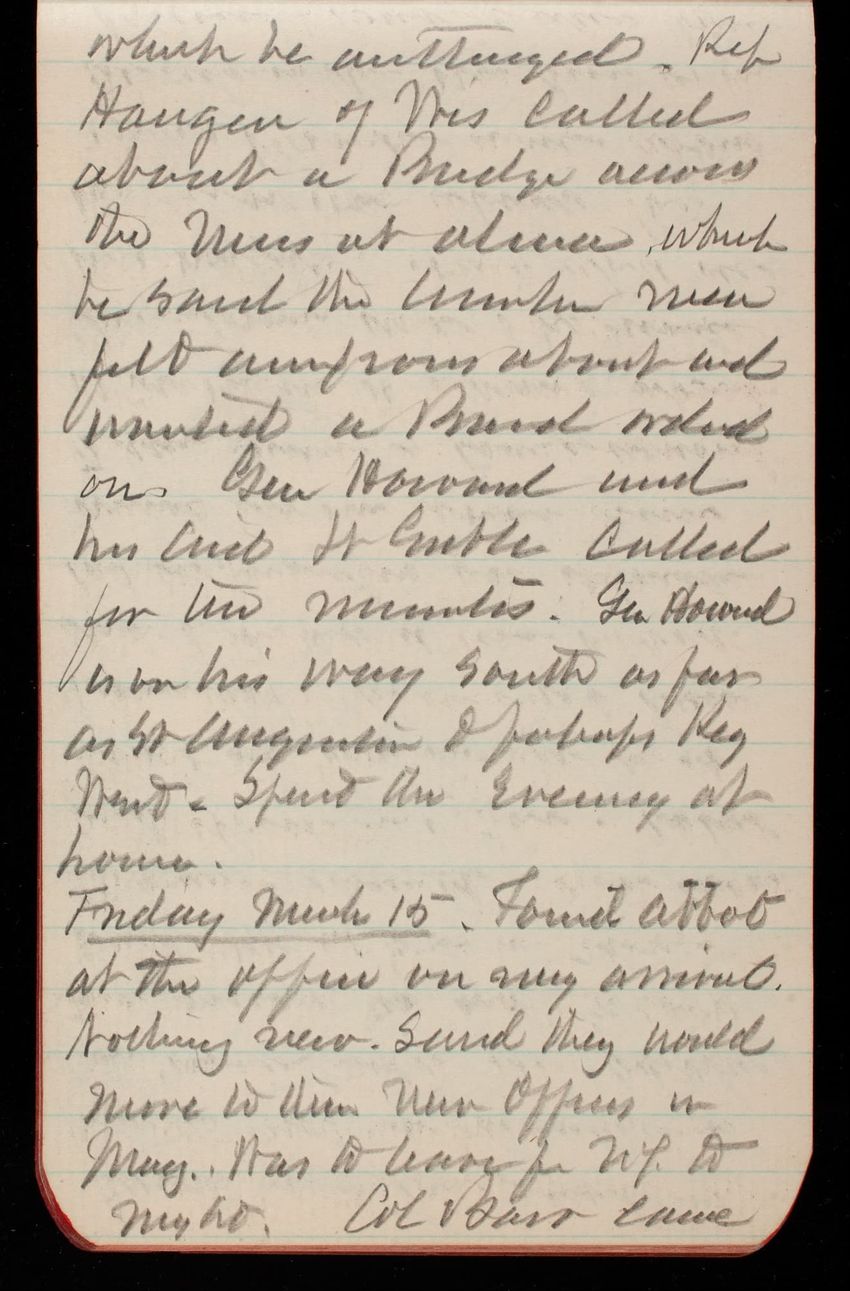 which he . Rep
Haugen of Wis called
about a Bridge across
the Miss at Alma, which
he said the lumber men
felt anxious about and
wanted a Board orderd
on. Gen Howard and
his Aid Lt called
for ten minutes. Gen Howard
is on his way South as far
as St Augustin & perhaps Key
West. Spent the Evening at
home.
Friday March 15. Found Abbot
at the office on my arrival.
Nothing new. Said they would
move to their New Offices in
May. Was to leave for N.Y. to
night. Col Barr came